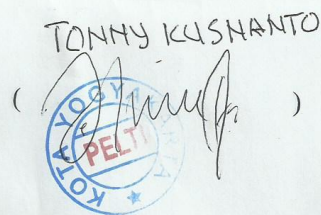 TONNY KUSNANTO
( )
KOTA YOGYAKARTA
PELTI